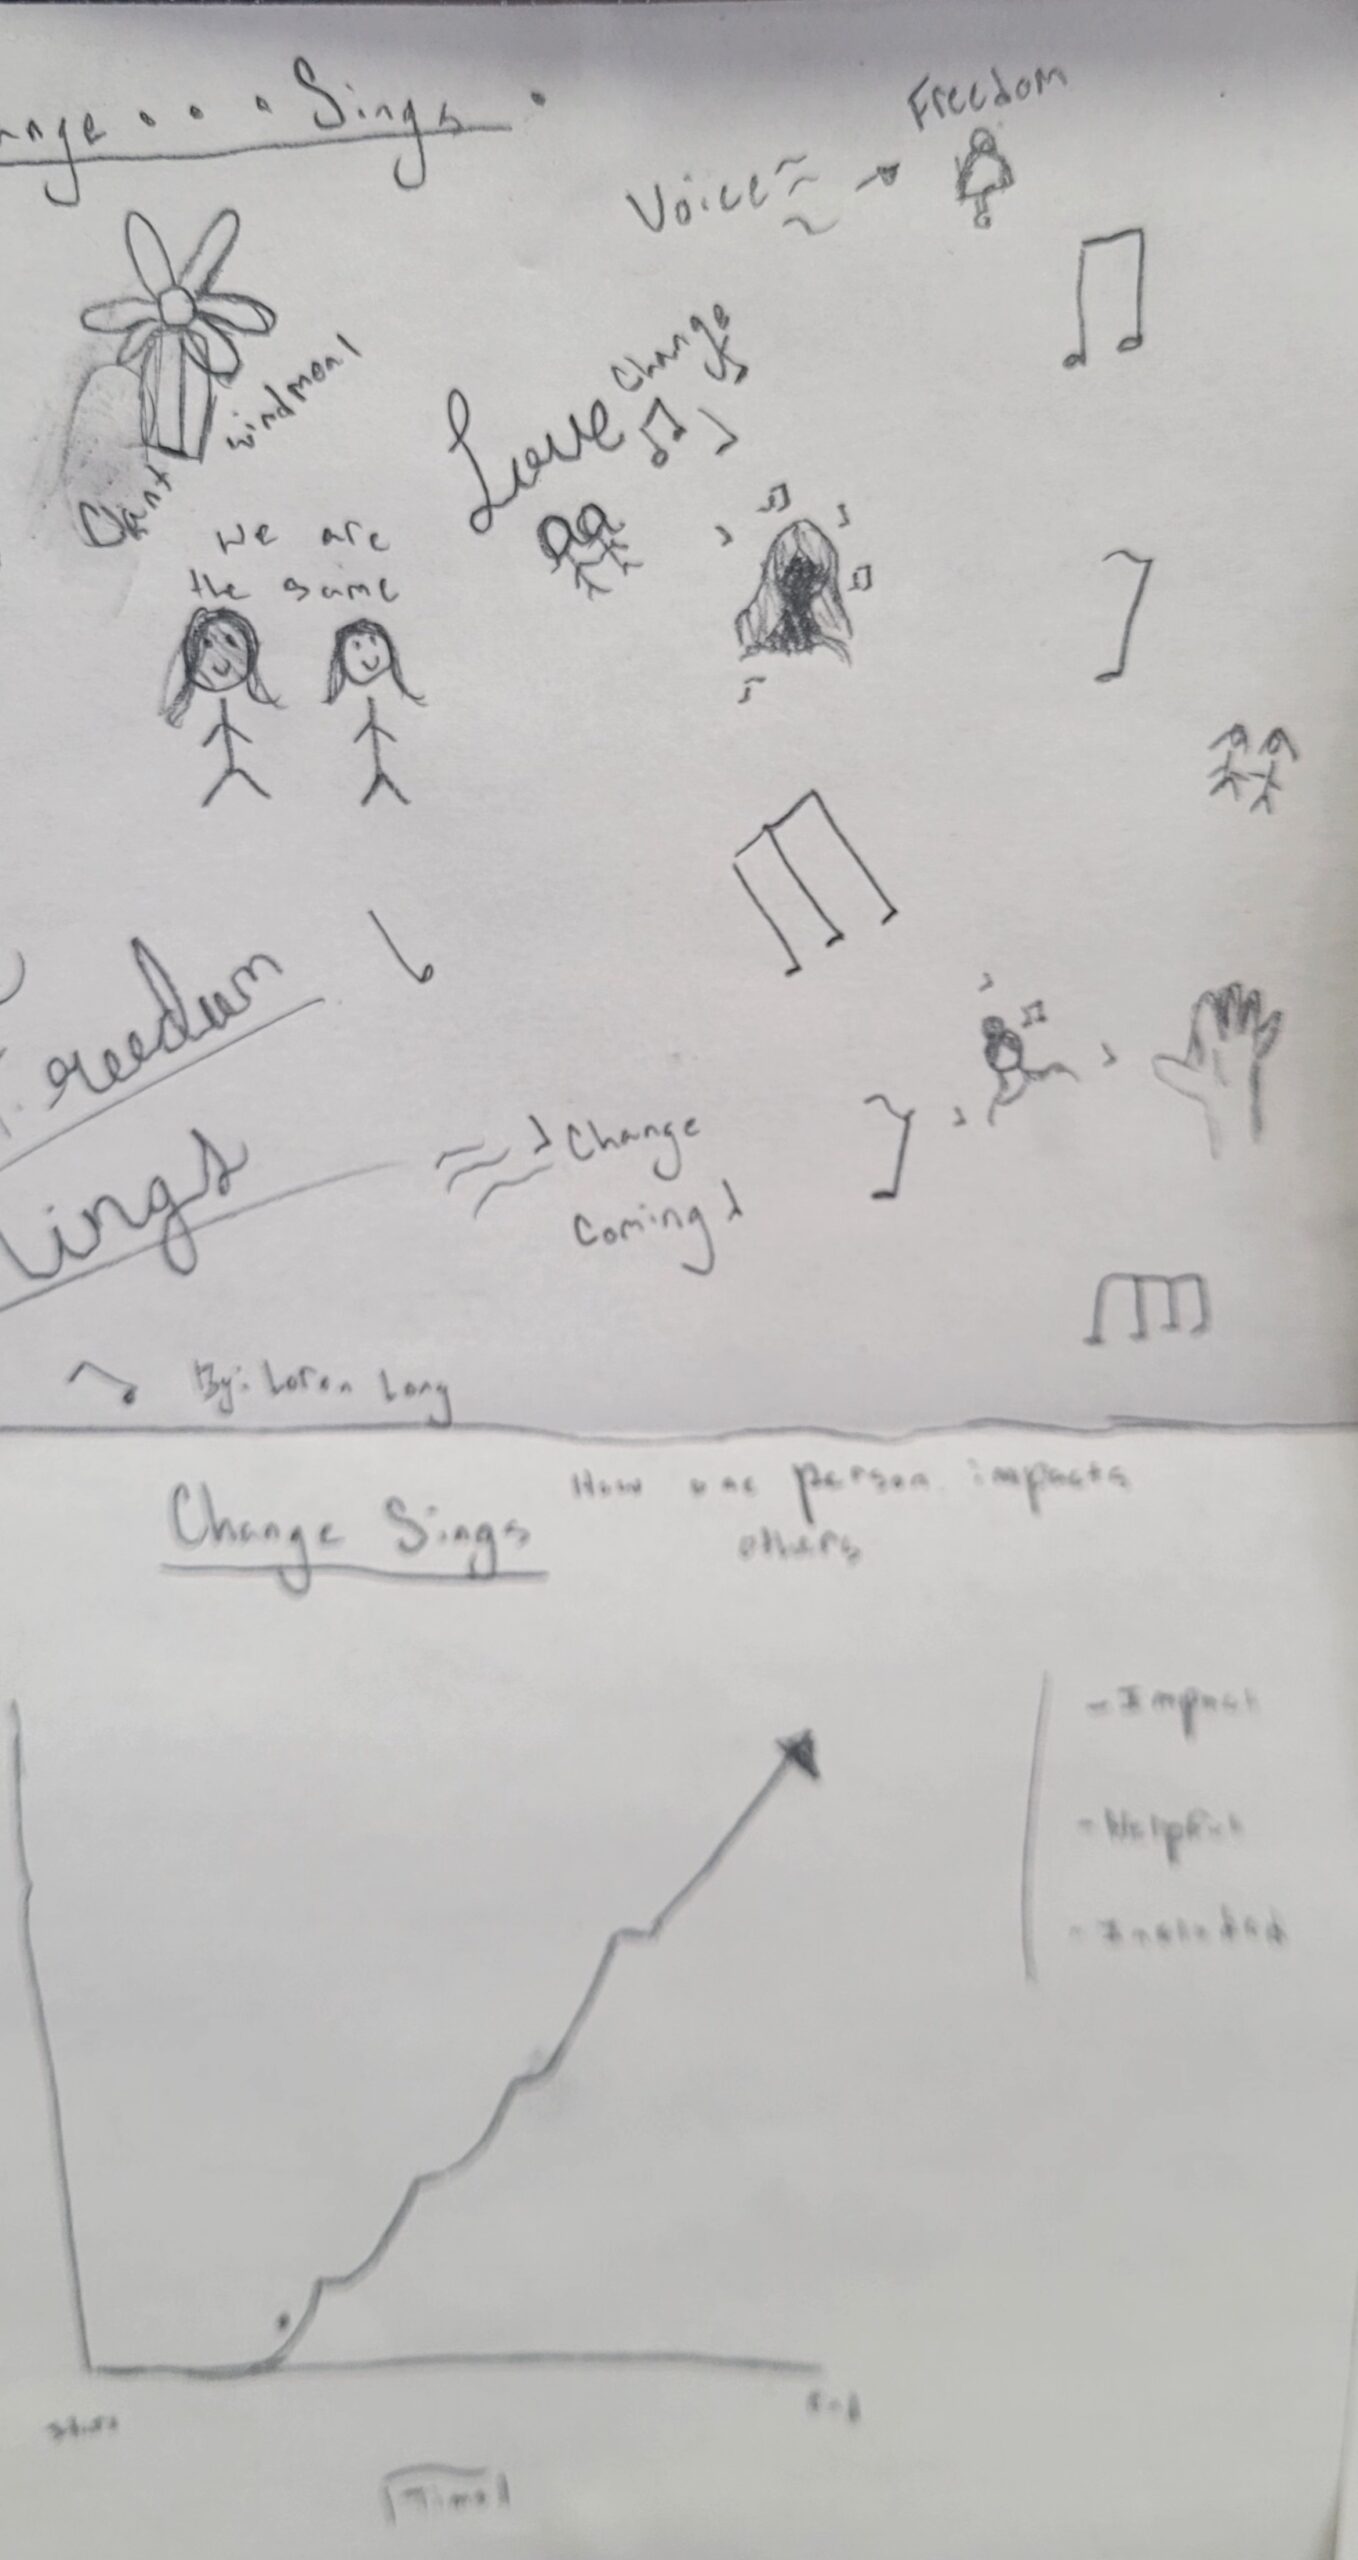 ange . . . Sings .
Freedom
Voice
Change
Love
windmeal
We are
the same
Freedum
Change
Coming
By: Loren Long
Change Sings
How one person impacts
others
- Impact
- Helpful
- Included
Start
End
Time